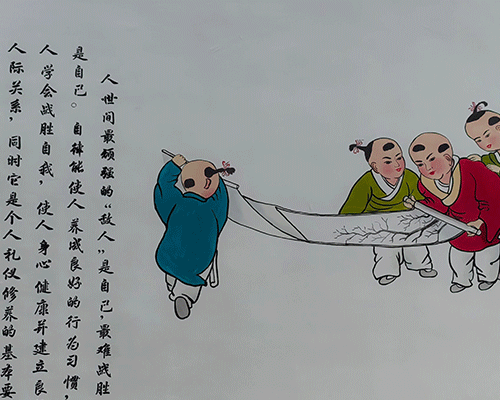 人世间最顽强的“敌人”是自己，最难战胜
是自己。自律能使人养成良好的行为习惯，
人学会战胜自我，使人身心健康并建立良
人际关系，同时它是个人礼仪修养的基本要